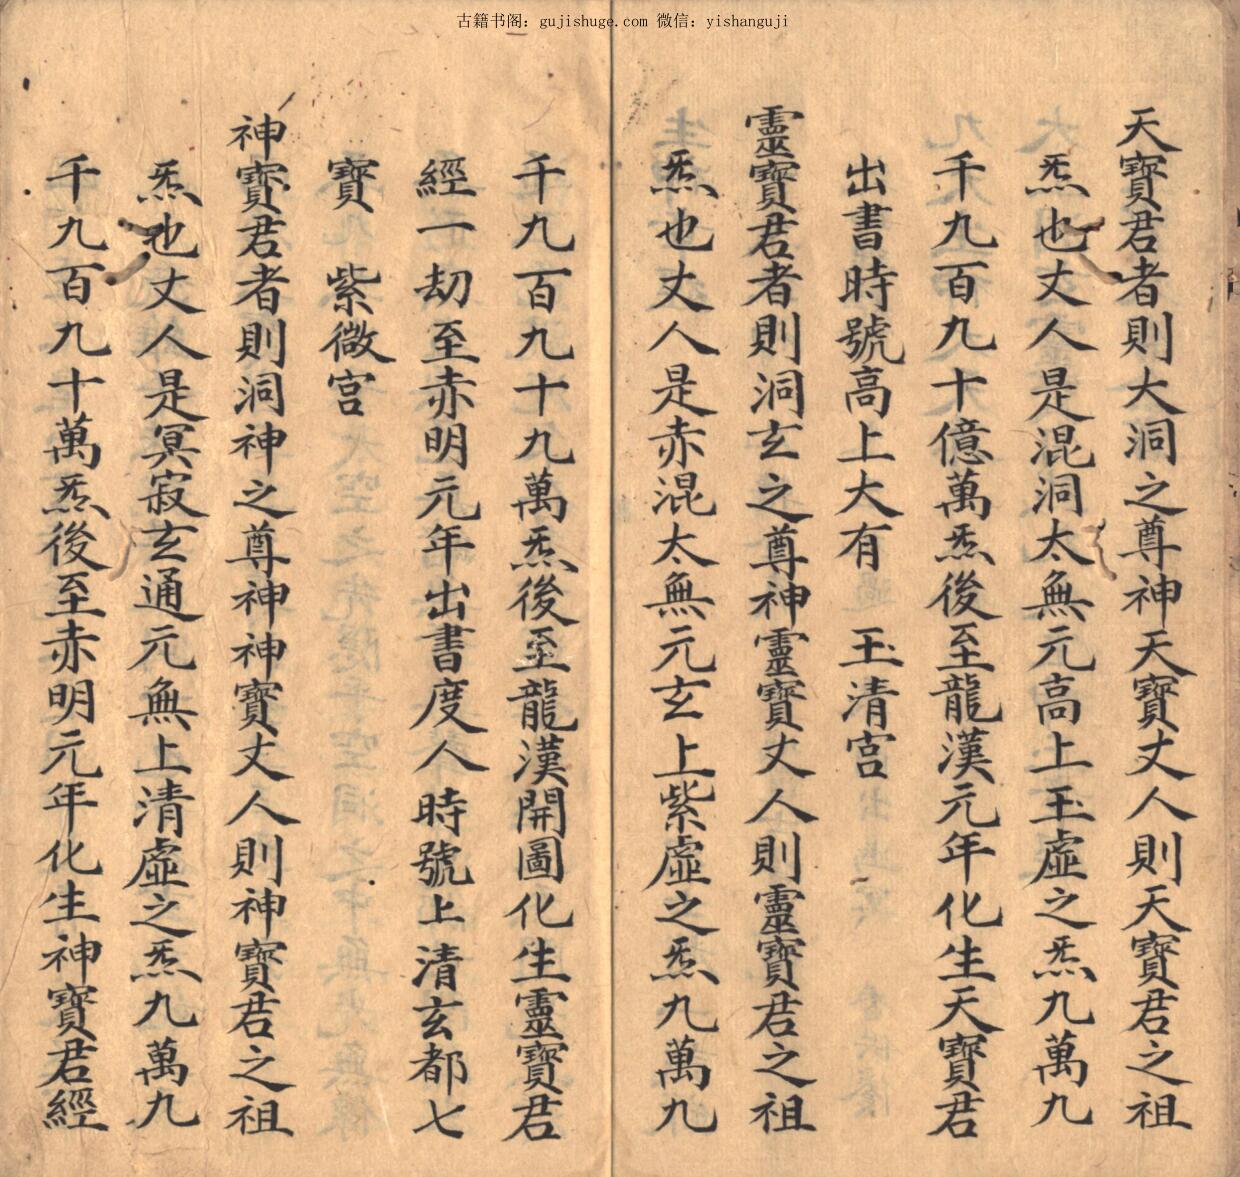 古籍书阁：gujishuge.com 微信：yishanguji
天寶君者則大洞之尊神天寶丈人則天寶君之祖
炁也丈人是混洞太無元高上玉虛之炁九萬九
千九百九十億萬炁後至龍漢元年化生天寶君
出書時號高上大有　玉清宮
靈寶君者則洞玄之尊神靈寶丈人則靈寶君之祖
炁也丈人是赤混太無元玄上紫虛之炁九萬九
千九百九十九萬炁後至龍漢開圖化生靈寶君
經一劫至赤明元年出書度人時號上清玄都七
寶　紫微宮
神寶君者則洞神之尊神神寶丈人則神寶君之祖
炁也丈人是冥寂玄通元無上清虛之炁九萬九
千九百九十萬炁後至赤明元年化生神寶君經